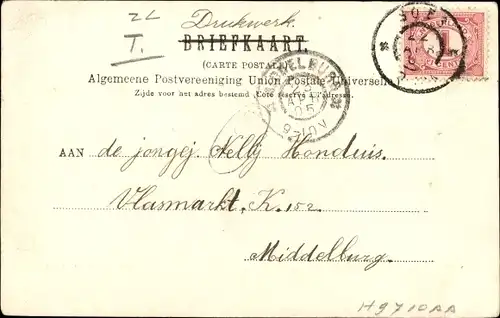 22
T.
Drukwerk.
BRIEFKAART.
(CARTE POSTALE)
Algemeene Postvereeniging Union Postale Universelle
Zijde voor het adres bestemd (Coté réservé à l'adresse)
MIDDELBURG
APR
05
9-10V
AAN de jongej Nelly Hondius.
Vlasmarkt, K. 152.
Middelburg.
H9710AA